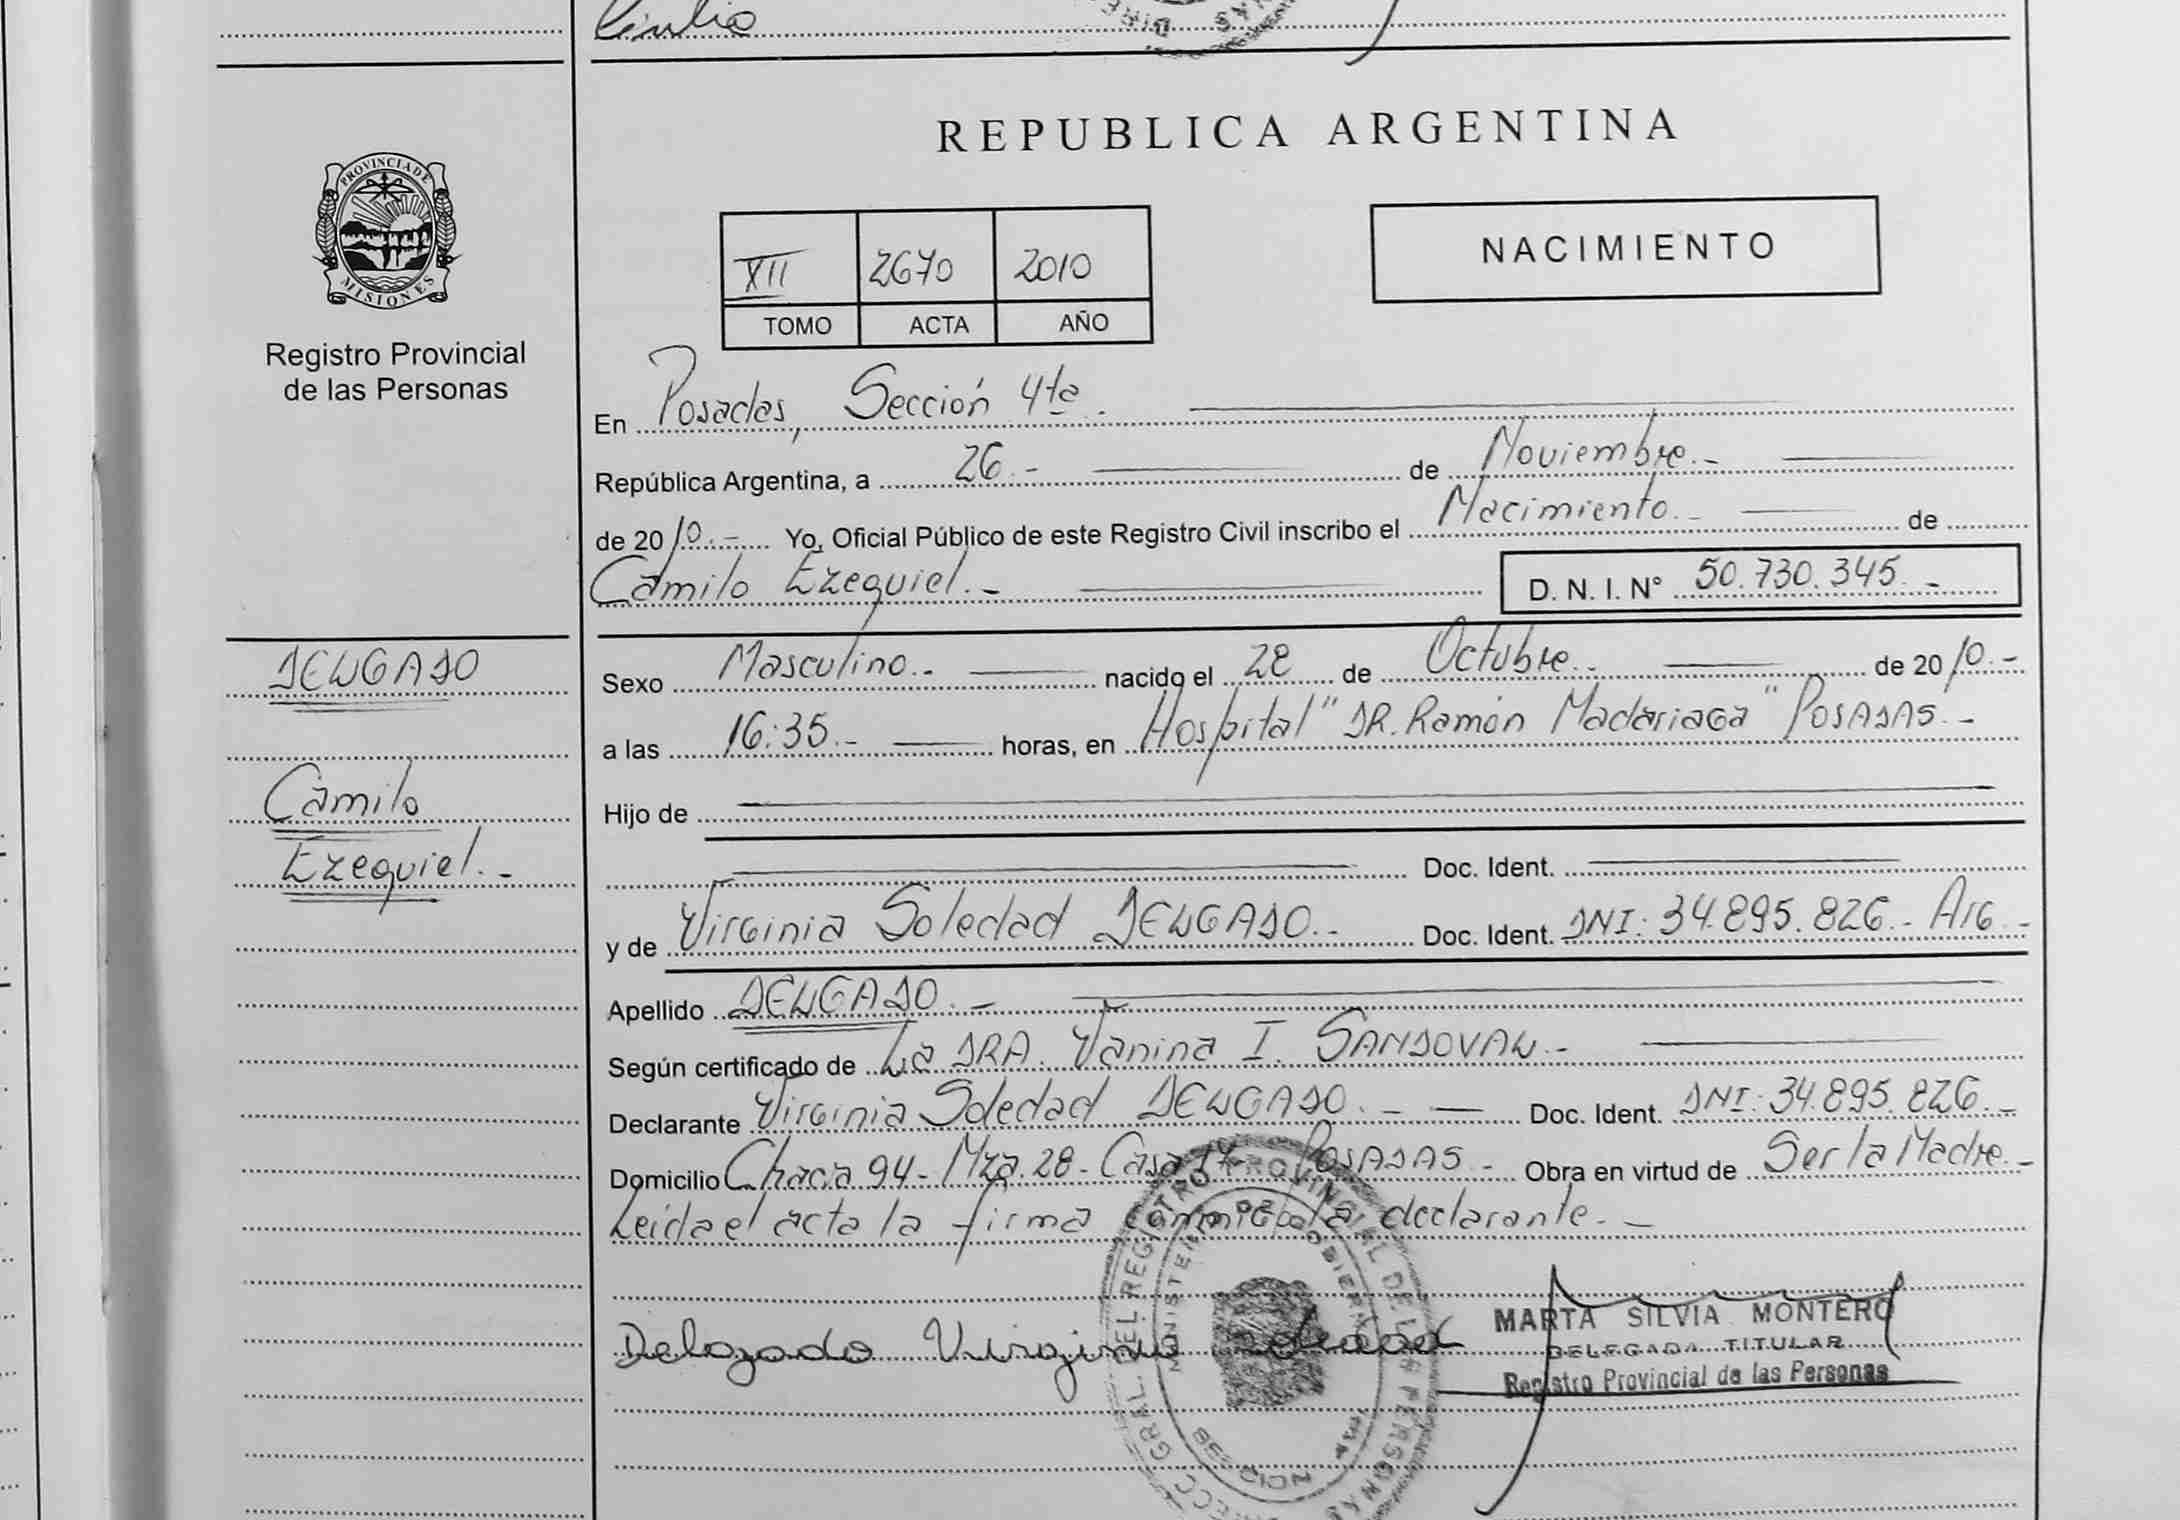 REPUBLICA ARGENTINA
PROVINCIA DE
MISIONES
Registro Provincial
de las Personas
XII 2670 2010
TOMO ACTA AÑO
NACIMIENTO
En Posadas, Sección 4ta.
República Argentina, a 26.- de Noviembre.-
de 2010.- Yo, Oficial Público de este Registro Civil inscribo el Nacimiento.- de
Camilo Ezequiel.- D. N. I. N° 50.730.345.-
DELGADO
Camilo
Ezequiel.-
Sexo Masculino.- nacido el 28 de Octubre.- de 2010.-
a las 16:35.- horas, en Hospital "DR. Ramón Madariaga" POSADAS.-
Hijo de
Doc. Ident.
y de Virginia Soledad DELGADO.- Doc. Ident. DNI: 34.895.826.- Arg.-
Apellido DELGADO.-
Según certificado de La DRA. Vanina I. SANDOVAL.-
Declarante Virginia Soledad DELGADO.- Doc. Ident. DNI: 34.895.826.-
Domicilio Chacra 94- Mza. 28- Casa POSADAS.- Obra en virtud de Ser la Madre.-
Leída el acta la firma conmigo la declarante.-
Delgado Virginia Soledad
MARTA SILVIA MONTERO
DELEGADA TITULAR
Registro Provincial de las Personas